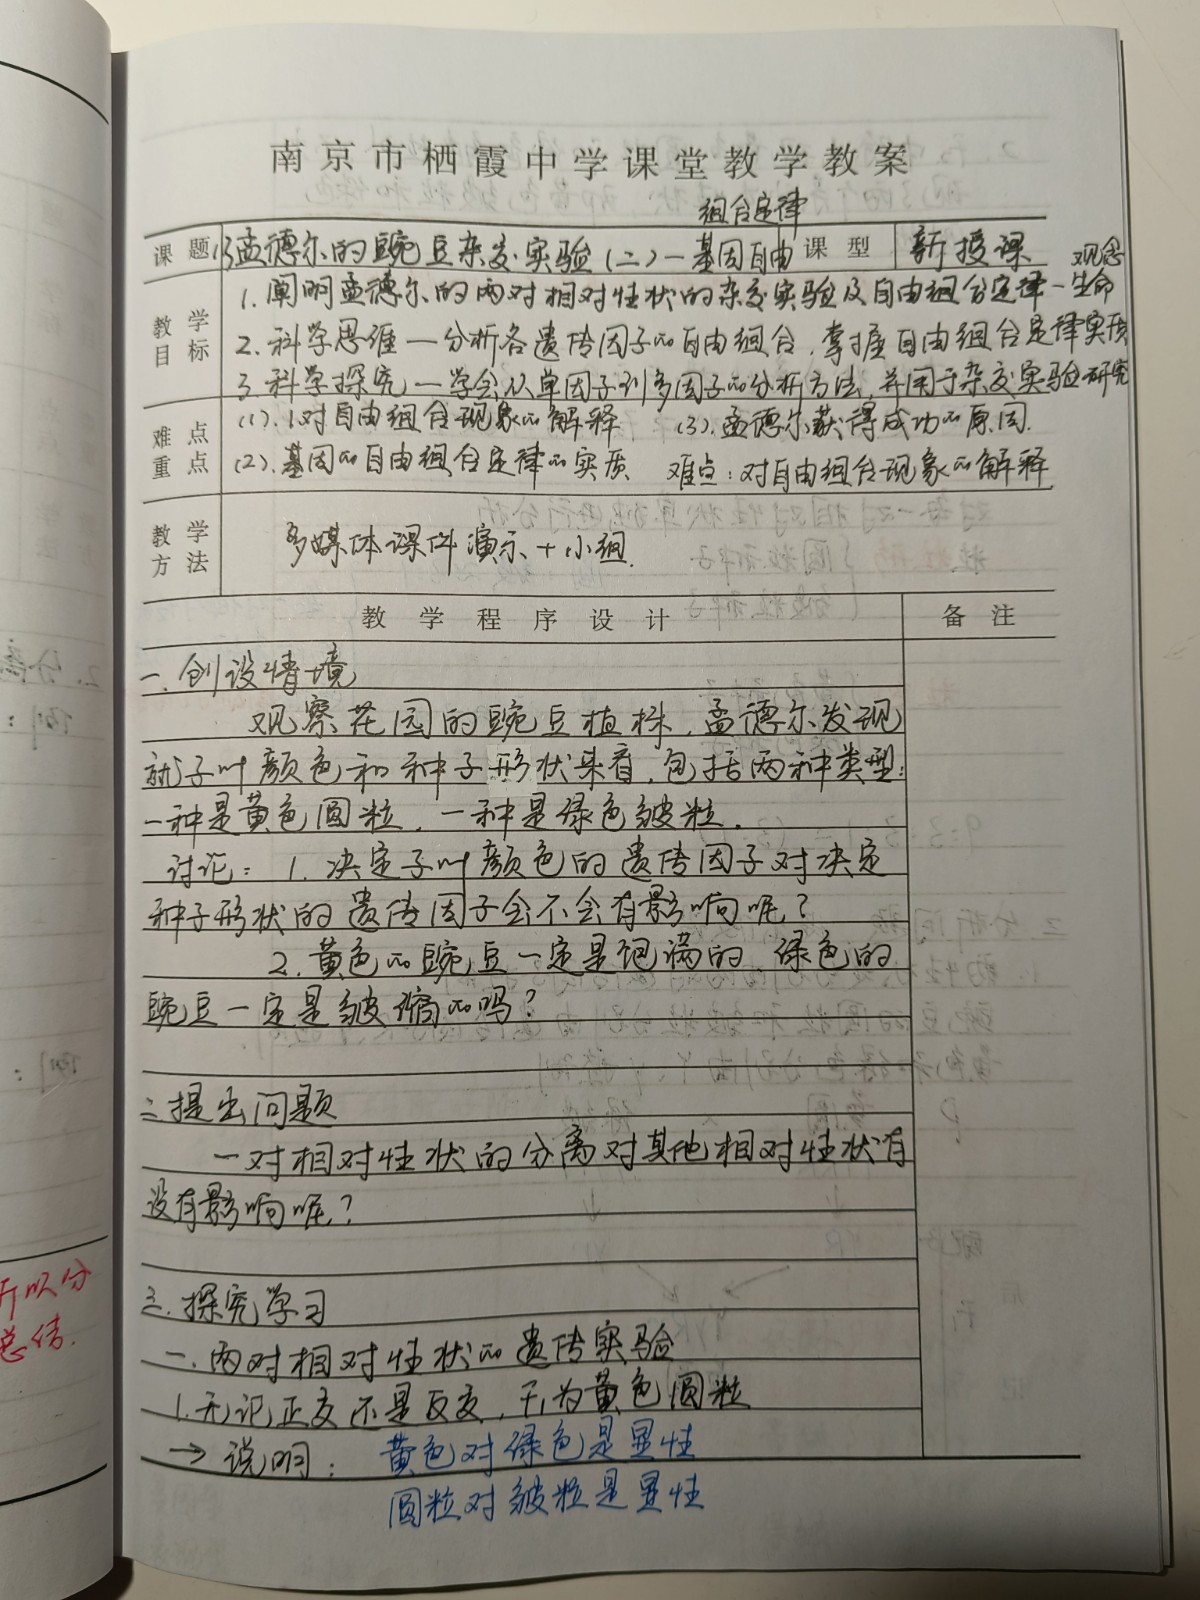 南京市栖霞中学课堂教学教案
组合定律
课题 孟德尔的豌豆杂交实验(二)一基因自由 课型 新授课
观念
教学目标 1. 阐明孟德尔的两对相对性状的杂交实验及自由组合定律—生命
2. 科学思维—分析各遗传因子的自由组合，掌握自由组合定律实质
3. 科学探究—学会从单因子到多因子的分析方法，并用于杂交实验研究
难点重点 (1). 对自由组合现象的解释 (3). 孟德尔获得成功的原因.
(2). 基因的自由组合定律的实质 难点：对自由组合现象的解释
教学方法 多媒体课件演示+小组.
教学程序设计 备注
一. 创设情境
观察花园的豌豆植株，孟德尔发现
就子叶颜色和种子形状来看，包括两种类型：
一种是黄色圆粒，一种是绿色皱粒.
讨论：1. 决定子叶颜色的遗传因子对决定
种子形状的遗传因子会不会有影响呢？
2. 黄色的豌豆一定是饱满的，绿色的
豌豆一定是皱缩的吗？
二. 提出问题
一对相对性状的分离对其他相对性状有
没有影响呢？
三. 探究学习
一. 两对相对性状的遗传实验
1. 无论正交还是反交，F₁为黄色圆粒
→ 说明： 黄色对绿色是显性
圆粒对皱粒是显性
所以分
总结.